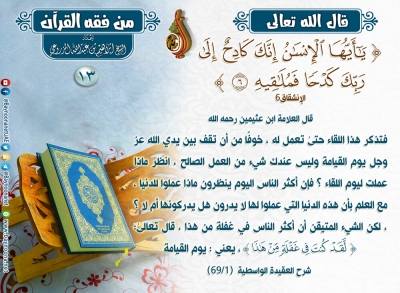 قال الله تعالى
من فقه القرآن
١٣
﴿ يَٰٓأَيُّهَا ٱلْإِنسَٰنُ إِنَّكَ كَادِحٌ إِلَىٰ
رَبِّكَ كَدْحًا فَمُلَٰقِيهِ ٦ ﴾
الإنشقاق6
قال العلامة ابن عثيمين رحمه الله
فتذكر هذا اللقاء حتى تعمل له ، خوفًا من أن تقف بين يدي الله عز
وجل يوم القيامة وليس عندك شيء من العمل الصالح ، انظر ماذا
عملت ليوم اللقاء ؟ فإن أكثر الناس اليوم ينظرون ماذا عملوا للدنيا ،
مع العلم بأن هذه الدنيا التي عملوا لها لا يدرون هل يدركونها أم لا ؟
، لكن الشيء المتيقن أن أكثر الناس في غفلة من هذا ، قال تعالى:
﴿ لَّقَدْ كُنتَ فِى غَفْلَةٍ مِّنْ هَٰذَا ﴾ ، يعني : يوم القيامة
شرح العقيدة الواسطية (69/1)